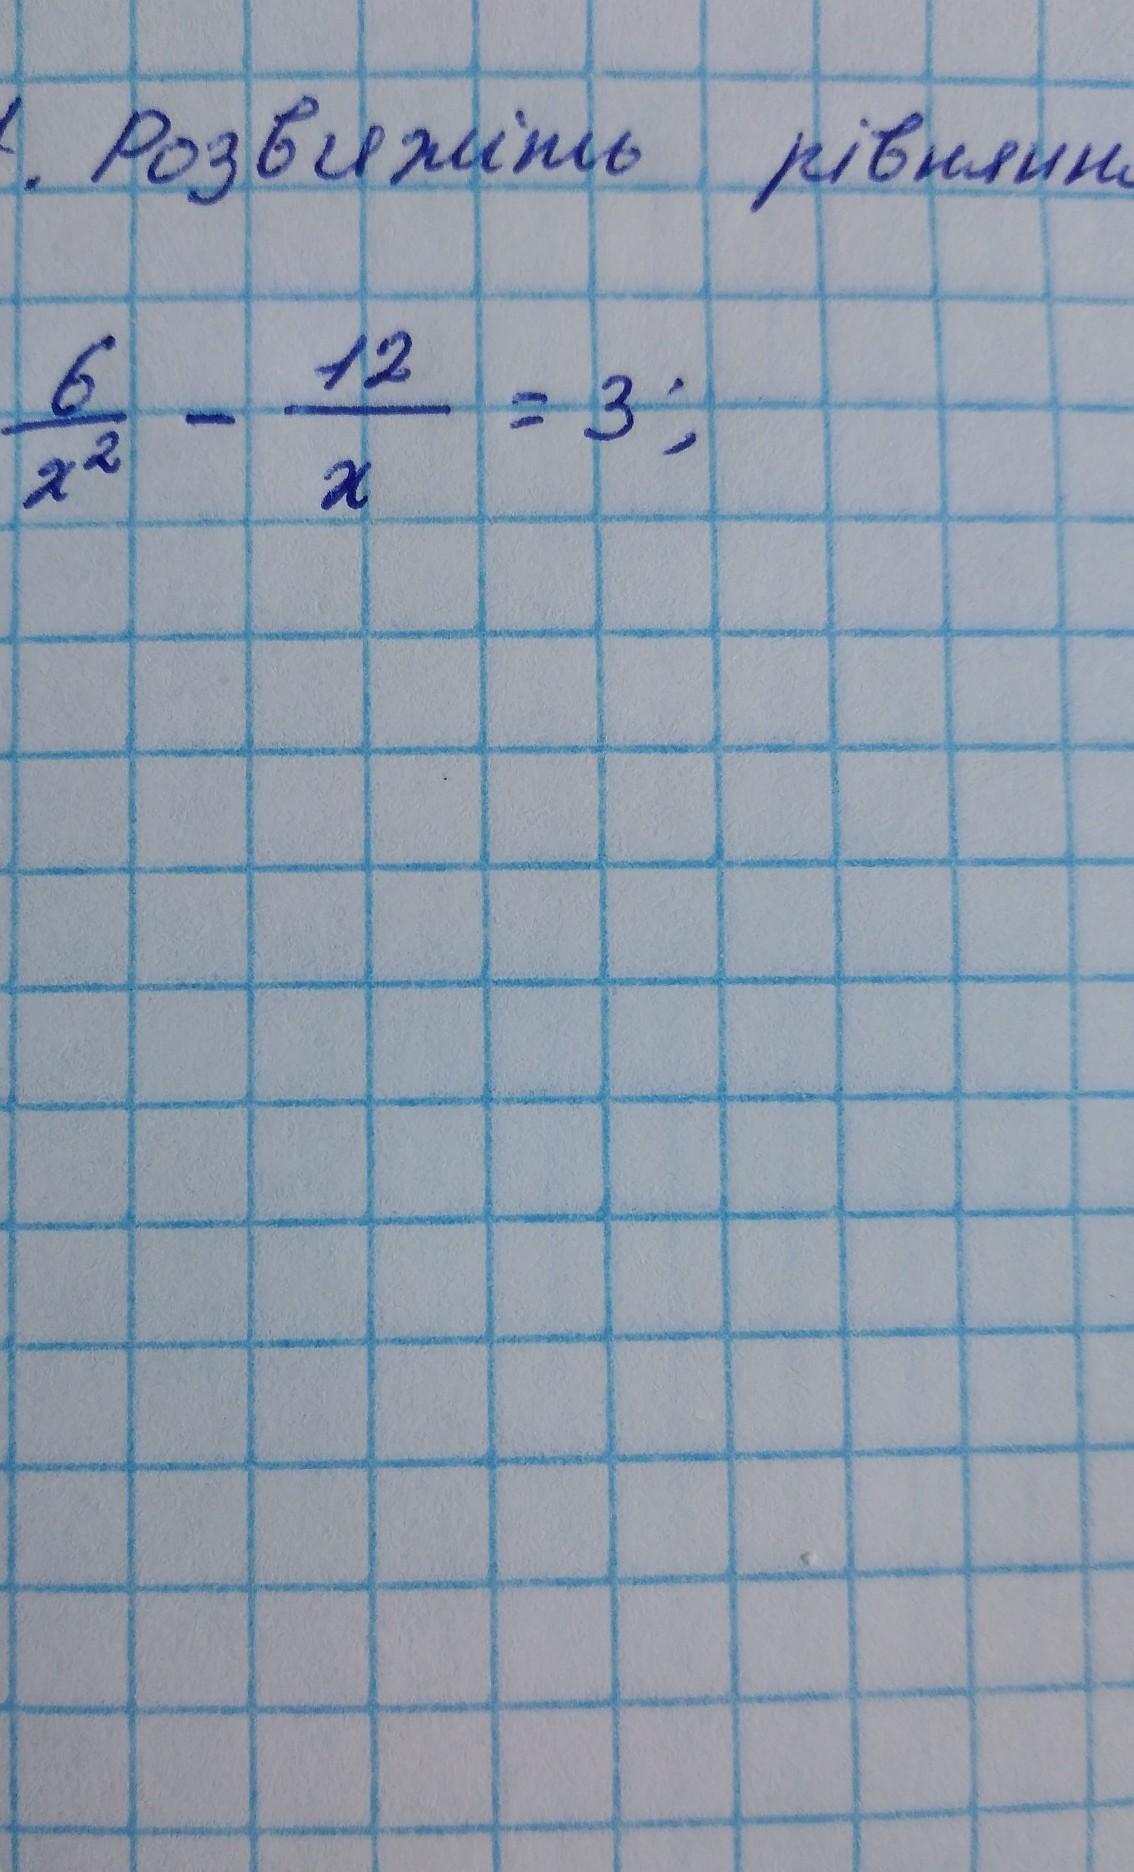 . Розвяжіть рівнянн
6/x² - 12/x = 3;